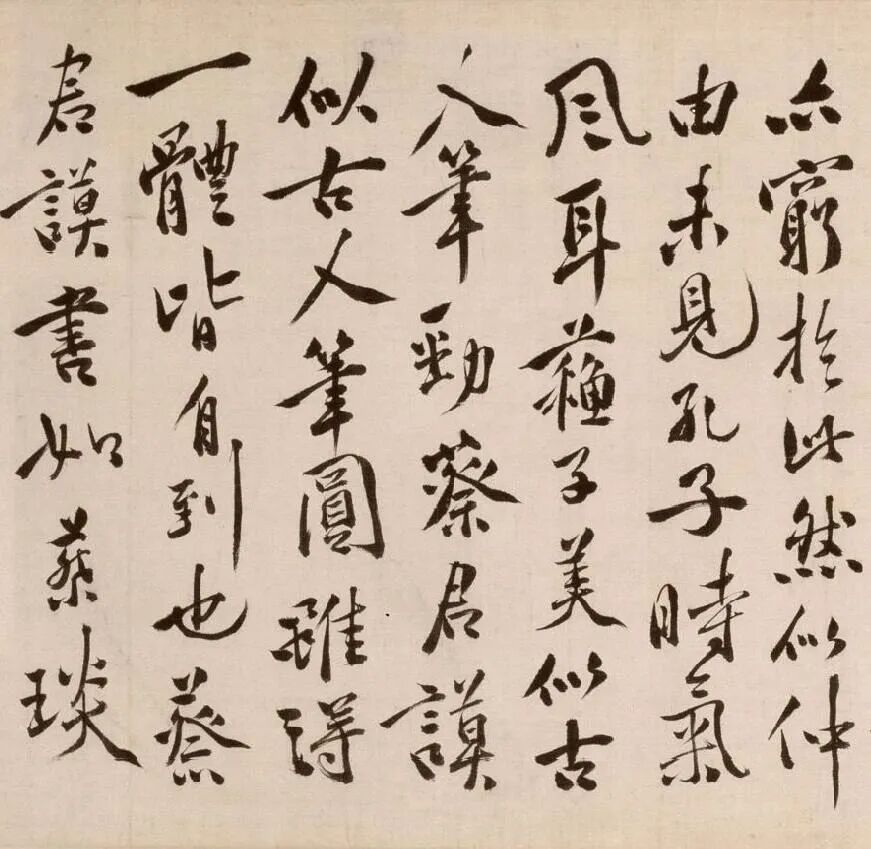 亦窮於此然似仲
由未見孔子時氣
風耳蘇子美似古
人筆勁蔡君謨
似古人筆圓雖得
一體皆自到也蔡
君謨書如蔡琰